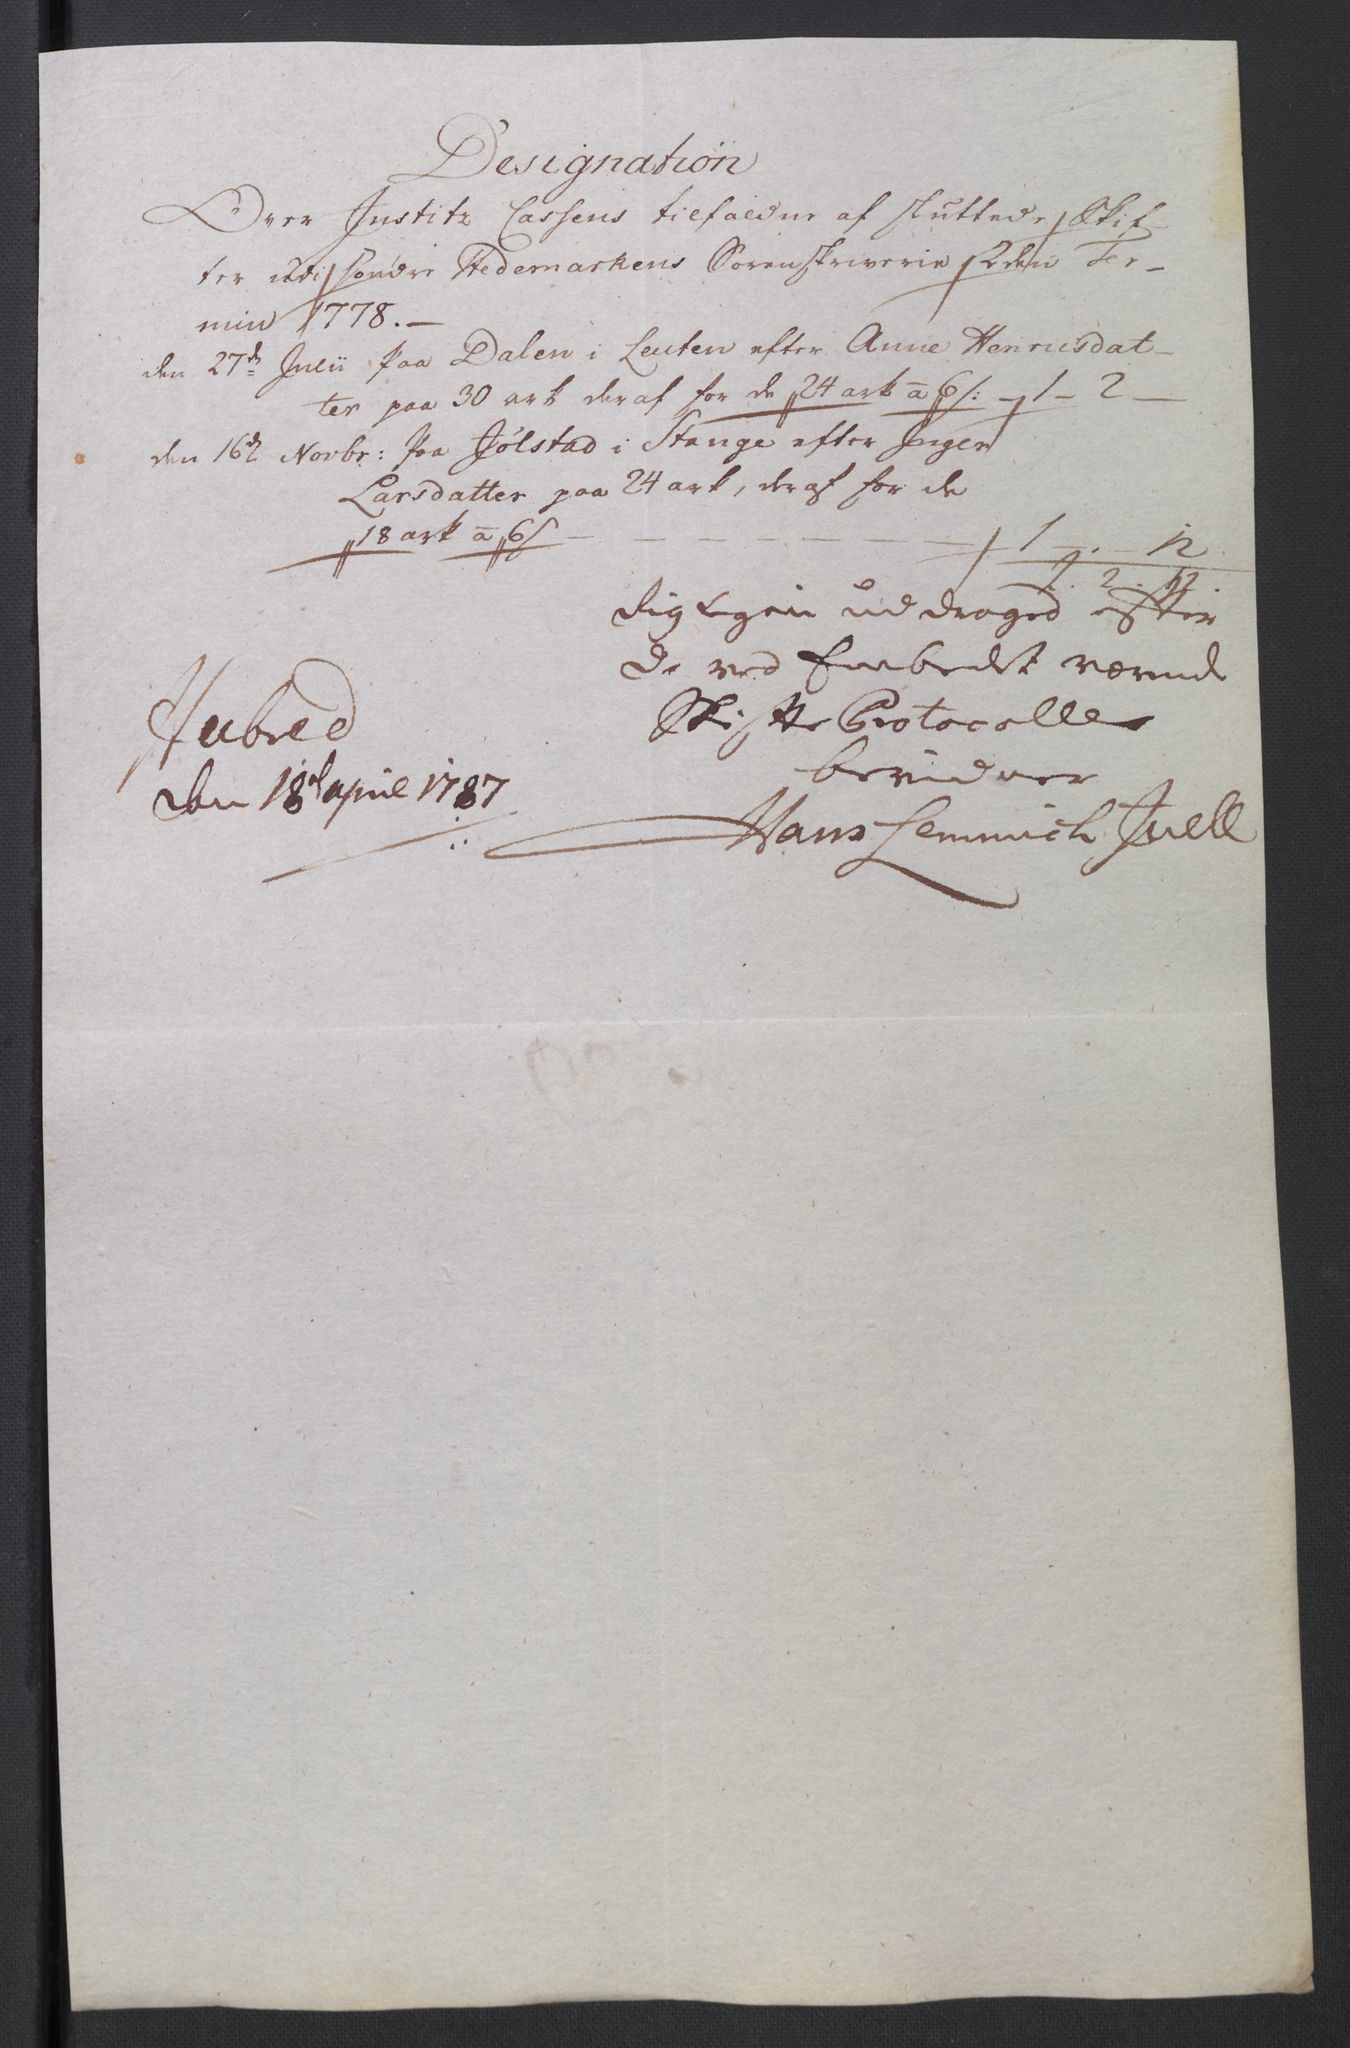 Designation
Over Justitz Cassens tilfaldne af sluttede Skif-
ter udi söndre Hedemarkens Sorenskriverie 2den Ter-
min 1778. —
den 27de Julii paa Dalen i Leuten efter Anne Henrusdat-
ter paa 30 ark deraf for de 24 ark a 6 s: — 1 — 2 —
den 16de Novbr: paa Jölstad i Stange efter Inger
Larsdatter paa 24 ark, deraf for de
18 ark a 6 s — — — — — — — 1 — . — 12
2. 2. 12
uddraged efter
de ved Embedet værende
Skifte Protocoller
bevidner
Hubred
den 18de April 1787
Hans Lemmich Juell